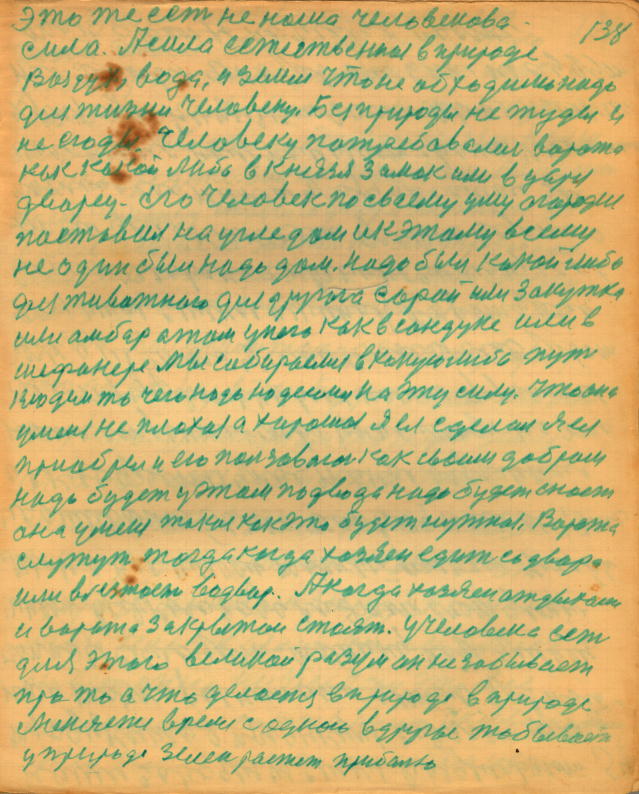 138
Это те сет не наша человекова
сила. А сила естественная в природе
Воздух, вода, и земля что необходимо надо
для жизни человеку. Без природы не туды и
не сюды. Человеку потребовалися ворота
как какой либо в князя замок или в царя
дворец. Его человек по своему уму
поставил на угле дом и к этому всему
не один был надо дом. Надо был какой либо
для животного для другога сарай или закутка
или амбар а там у него как в сандуке или в
шефанере. Мы собираемся в какую либо пут
чего надо на эту силу. Что она
у меня не плохая а хорошая я ел сделал я ел
приобрел и его как своим добром
надо будет у этом подвода надо будет
она у меня такая как это будет нужная. Ворота
служут тогда когда хозяен едит со двора
или в двор. А когда хозяен отдыхает
и ворота закрытом стоят. У человека ест
для этого великой разум он не забывает
про то а что делается в природе в природе
меняется время с одного в другое то бывает
у природе зелен растет